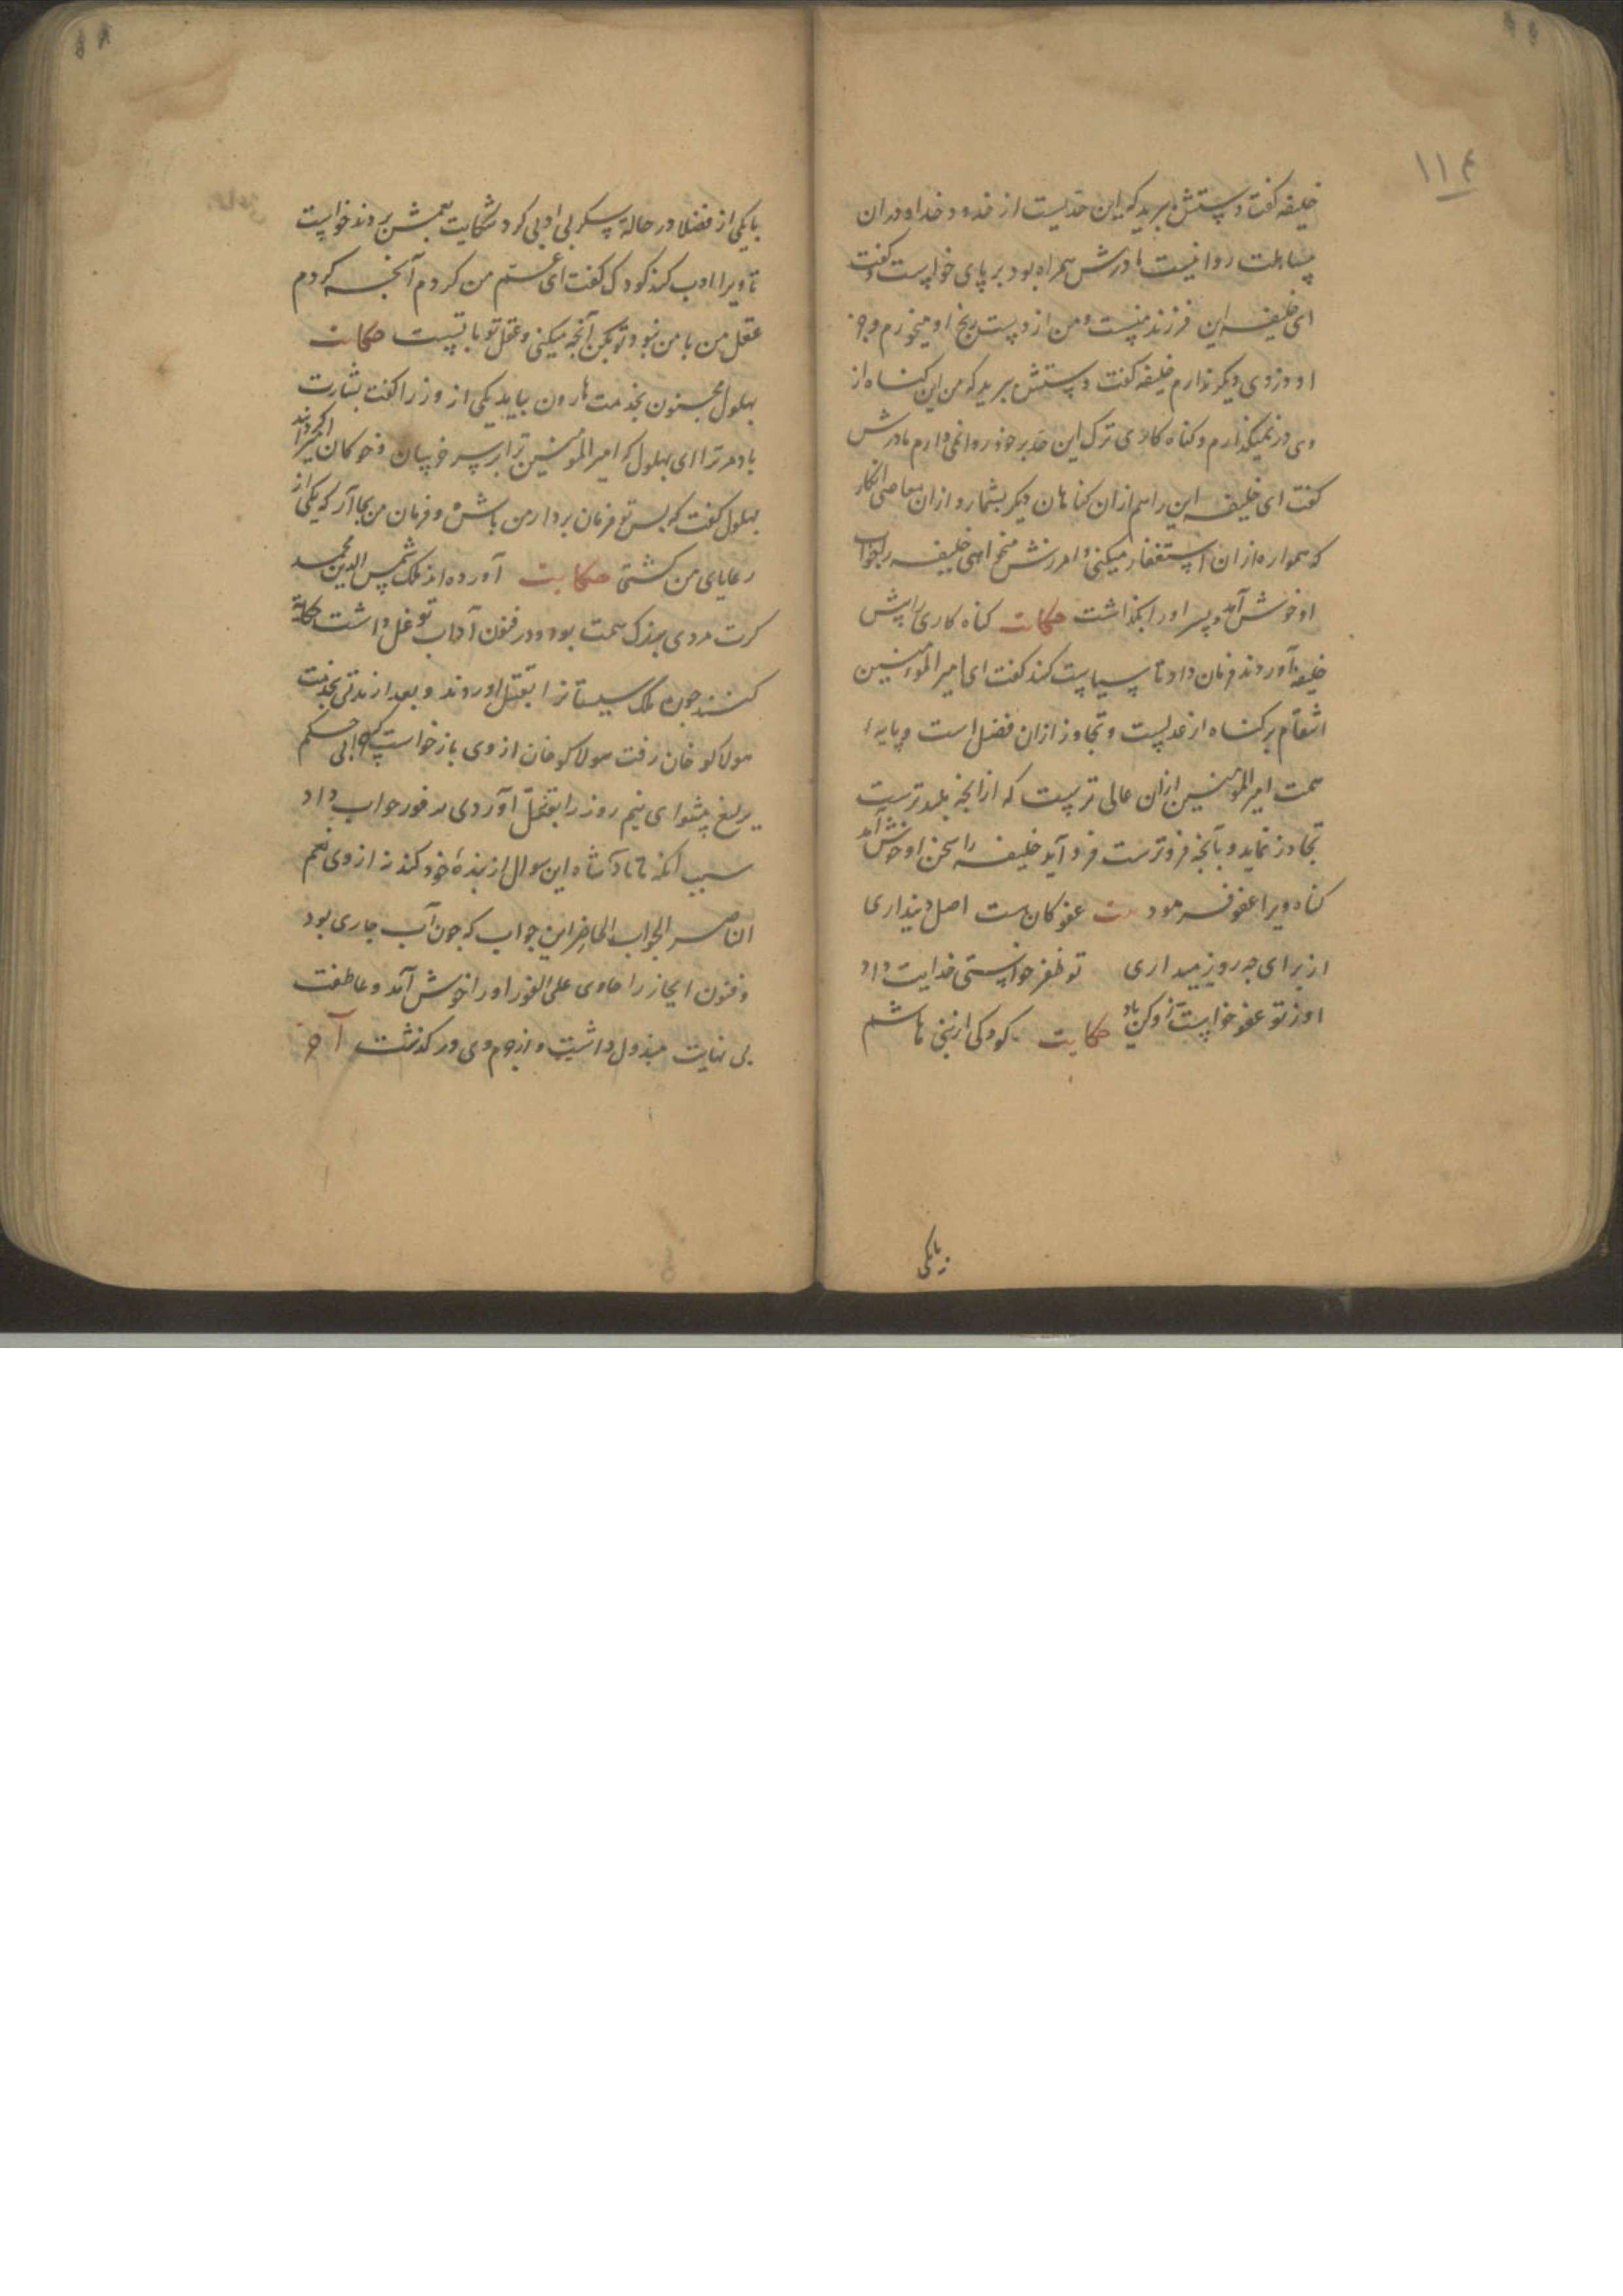 ۱۱۴
خلیفه گفت دستش ببرید که این حدیست از حدود خدا و دران
مساهلت روا نیست مادرش همراه بود بر پای خواست و گفت
ای خلیفه این فرزند منست و من از دست رنج او میخورم و جز
او روزی دیگر ندارم خلیفه گفت دستش ببرید که من این کناه از
وی در نمیکذارم و کناه کاری ترک این حد بر خود روا نمی دارم مادرش
گفت ای خلیفه این را هم ازان کناهان دیگر بشمار و ازان معاصی انگار
که همواره ازان استغفار میکنی و امرزش میخواهی خلیفه را جواب
او خوش آمد و پسر او را بگذاشت حکایت کناه کاری را پیش
خلیفه آوردند فرمان داد تا سیاست کنند گفت ای امیر المومنین
انتقام بر کناه از عدلست و تجاوز ازان فضل است و پایهٔ
همت امیر المومنین ازان عالی ترست که از انچه بلندترست
تجاوز نماید و بآنچه فروترست فرود آید خلیفه را سخن او خوش آمد
کناه ویرا عفو فرمود عفو کان هست اصل دینداری
از برای چه روز میداری تو ظفر خواستی خدایت داد
او ز تو عفو خواست حکایت کودکی از بنی هاشم
بایکی
با یکی از فضلا در حالة سکر بی ادبی کرد شکایت بعمش بردند خواست
تا ویرا ادب کند کودک گفت ای عم من کردم آنچه کردم
عقل من با من نبود تو مکن آنچه میکنی و عقل تو با تست حکایت
بهلول مجنون بخدمت هارون بیامد یکی از وزرا گفت بشارت
باد مر ترا ای بهلول که امیر المومنین ترا بر سر خرسان و خوکان امیر کردند
بهلول گفت که پس تو فرمان بردار من باش و فرمان من بجا آر که یکی از
رعایای من گشتی حکایت آورده اند ملک شمس الدین محمد
کرت مردی بزرک همت بود و در فنون آداب توغل داشت حکایة
کنند چون ملک سیستانرا بقتل اورد و بعد از مدتی بخدمت
هولاکو خان رفت هولاکو خان از وی باز خواست که چرا بی حکم
یرلیغ پیشوای نیم روز را بقتل آوردی در فور جواب داد
سبب انکه تا پادشاه این سوال از بندهٔ خود کند نه از وی نعم
الناصر الجواب الحاضر این جواب که چون آب جاری بود
و فنون ایجاز را حاوی علی الفور او را خوش آمد و عاطفت
بی نهایت مبذول داشت و از جرم وی در گذشت آخر